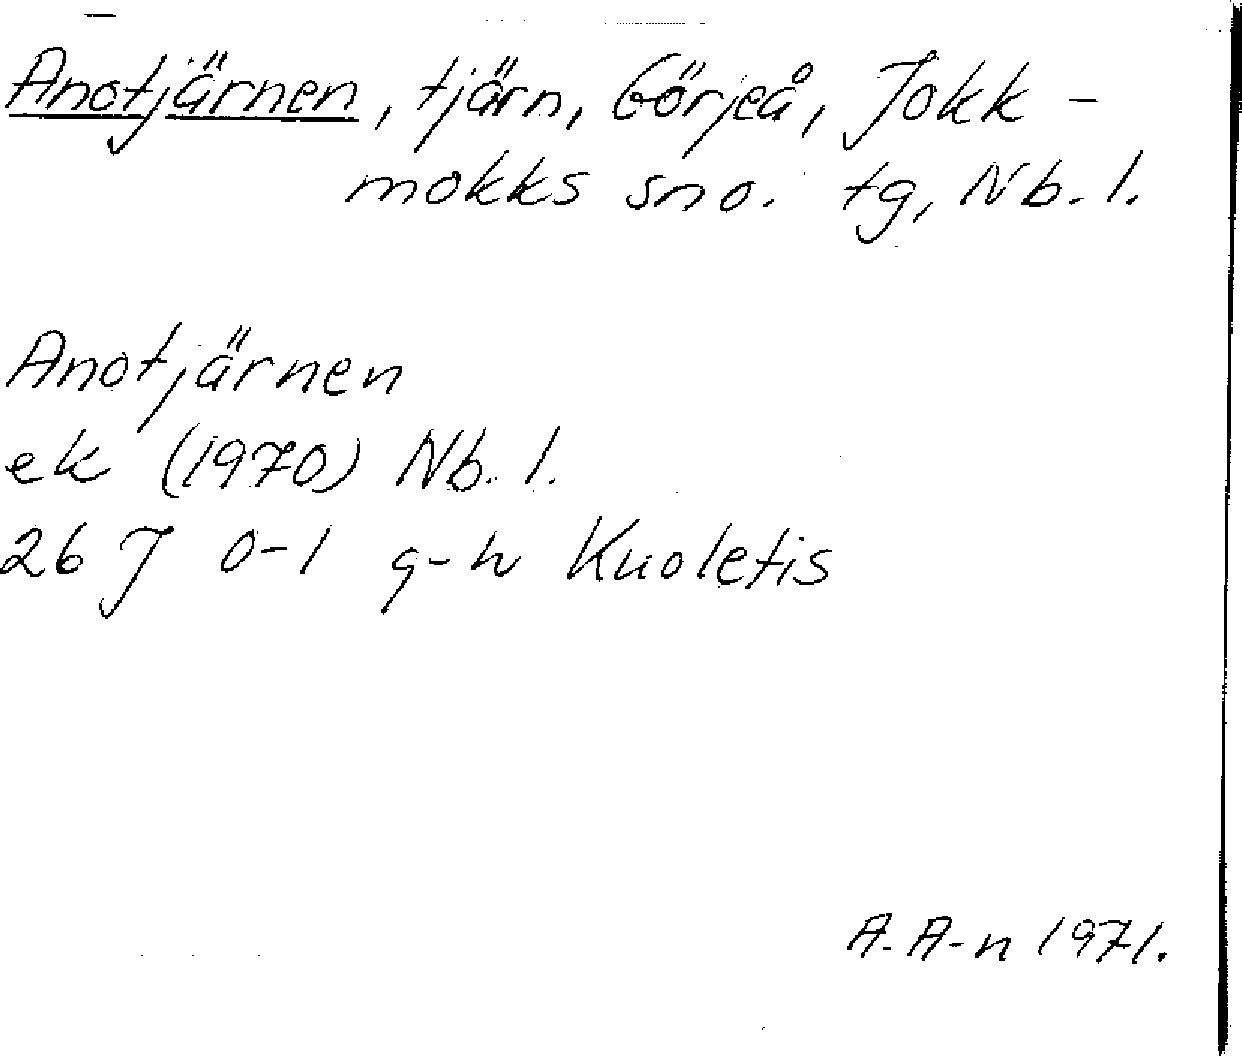 Anotjärnen, tjärn, Görjeå, Jokk-
mokks sno. tg, Nb. l.
Anotjärnen
ek (1970) Nb. l.
26 J 0-1 g-h Kuoletis
A. A-n 1971.